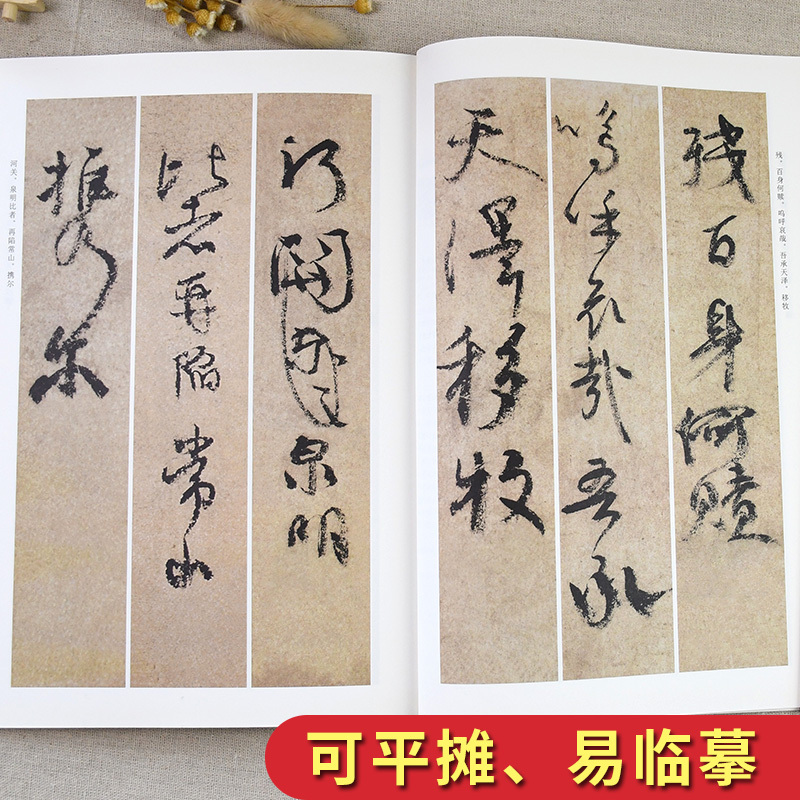 残、百身何赎、呜呼哀哉、吾承天泽、移牧
殘百身何贖
嗚呼哀哉吾承
天澤移牧
河關泉明
比者再陷常山
携尔
河关、泉明比者、再陷常山、携尔
可平摊、易临摹